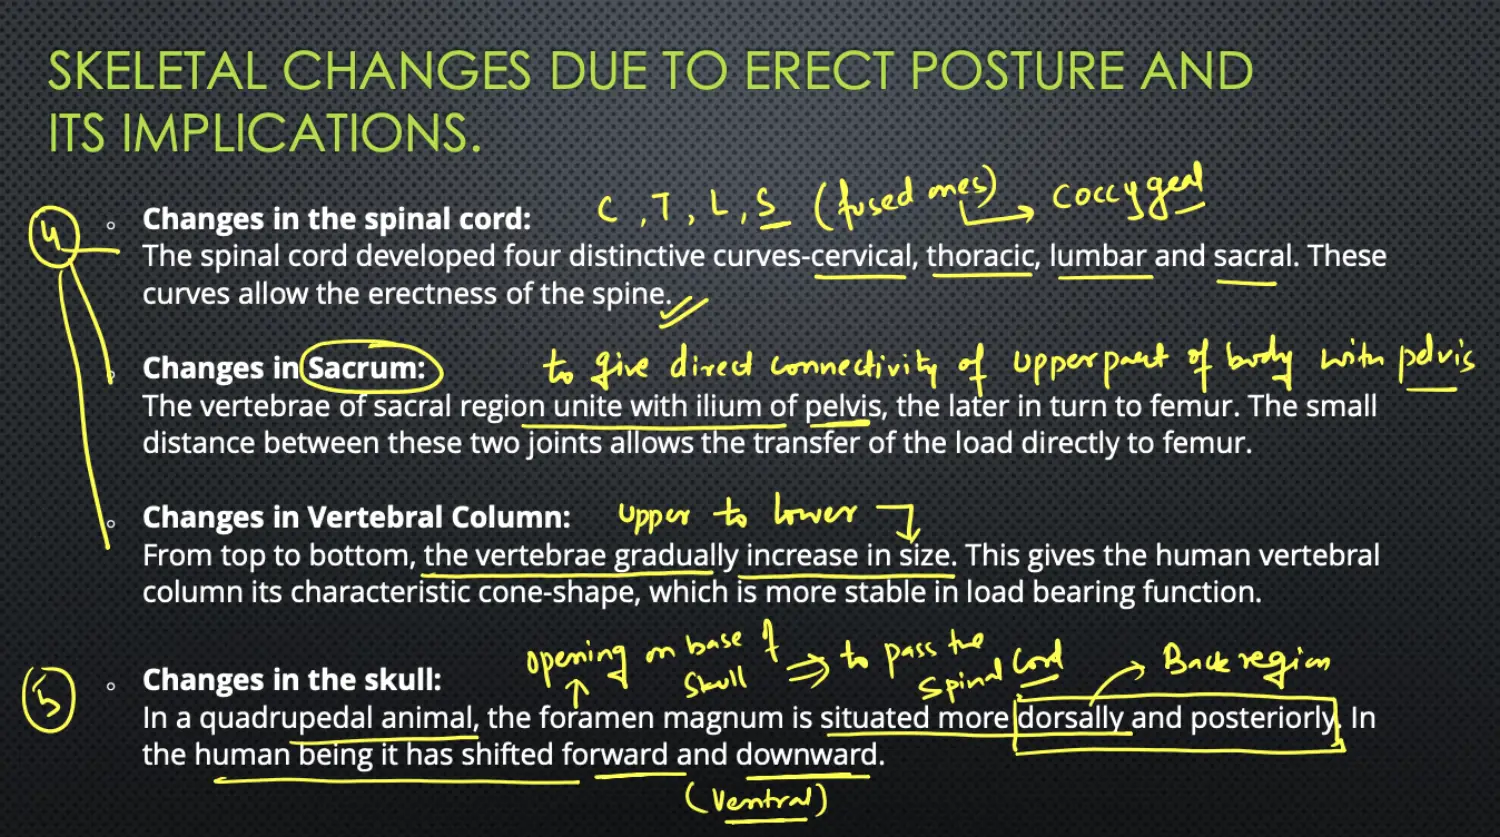 SKELETAL CHANGES DUE TO ERECT POSTURE AND
ITS IMPLICATIONS.
C, T, L, S (fused ones) → coccygeal
4
Changes in the spinal cord:
The spinal cord developed four distinctive curves-cervical, thoracic, lumbar and sacral. These
curves allow the erectness of the spine.
Changes in Sacrum: to give direct connectivity of upper part of body with pelvis
The vertebrae of sacral region unite with ilium of pelvis, the later in turn to femur. The small
distance between these two joints allows the transfer of the load directly to femur.
Changes in Vertebral Column: upper to lower
From top to bottom, the vertebrae gradually increase in size. This gives the human vertebral
column its characteristic cone-shape, which is more stable in load bearing function.
opening on base of skull ⇒ to pass the spinal cord → Back region
5
Changes in the skull:
In a quadrupedal animal, the foramen magnum is situated more dorsally and posteriorly. In
the human being it has shifted forward and downward.
(ventral)